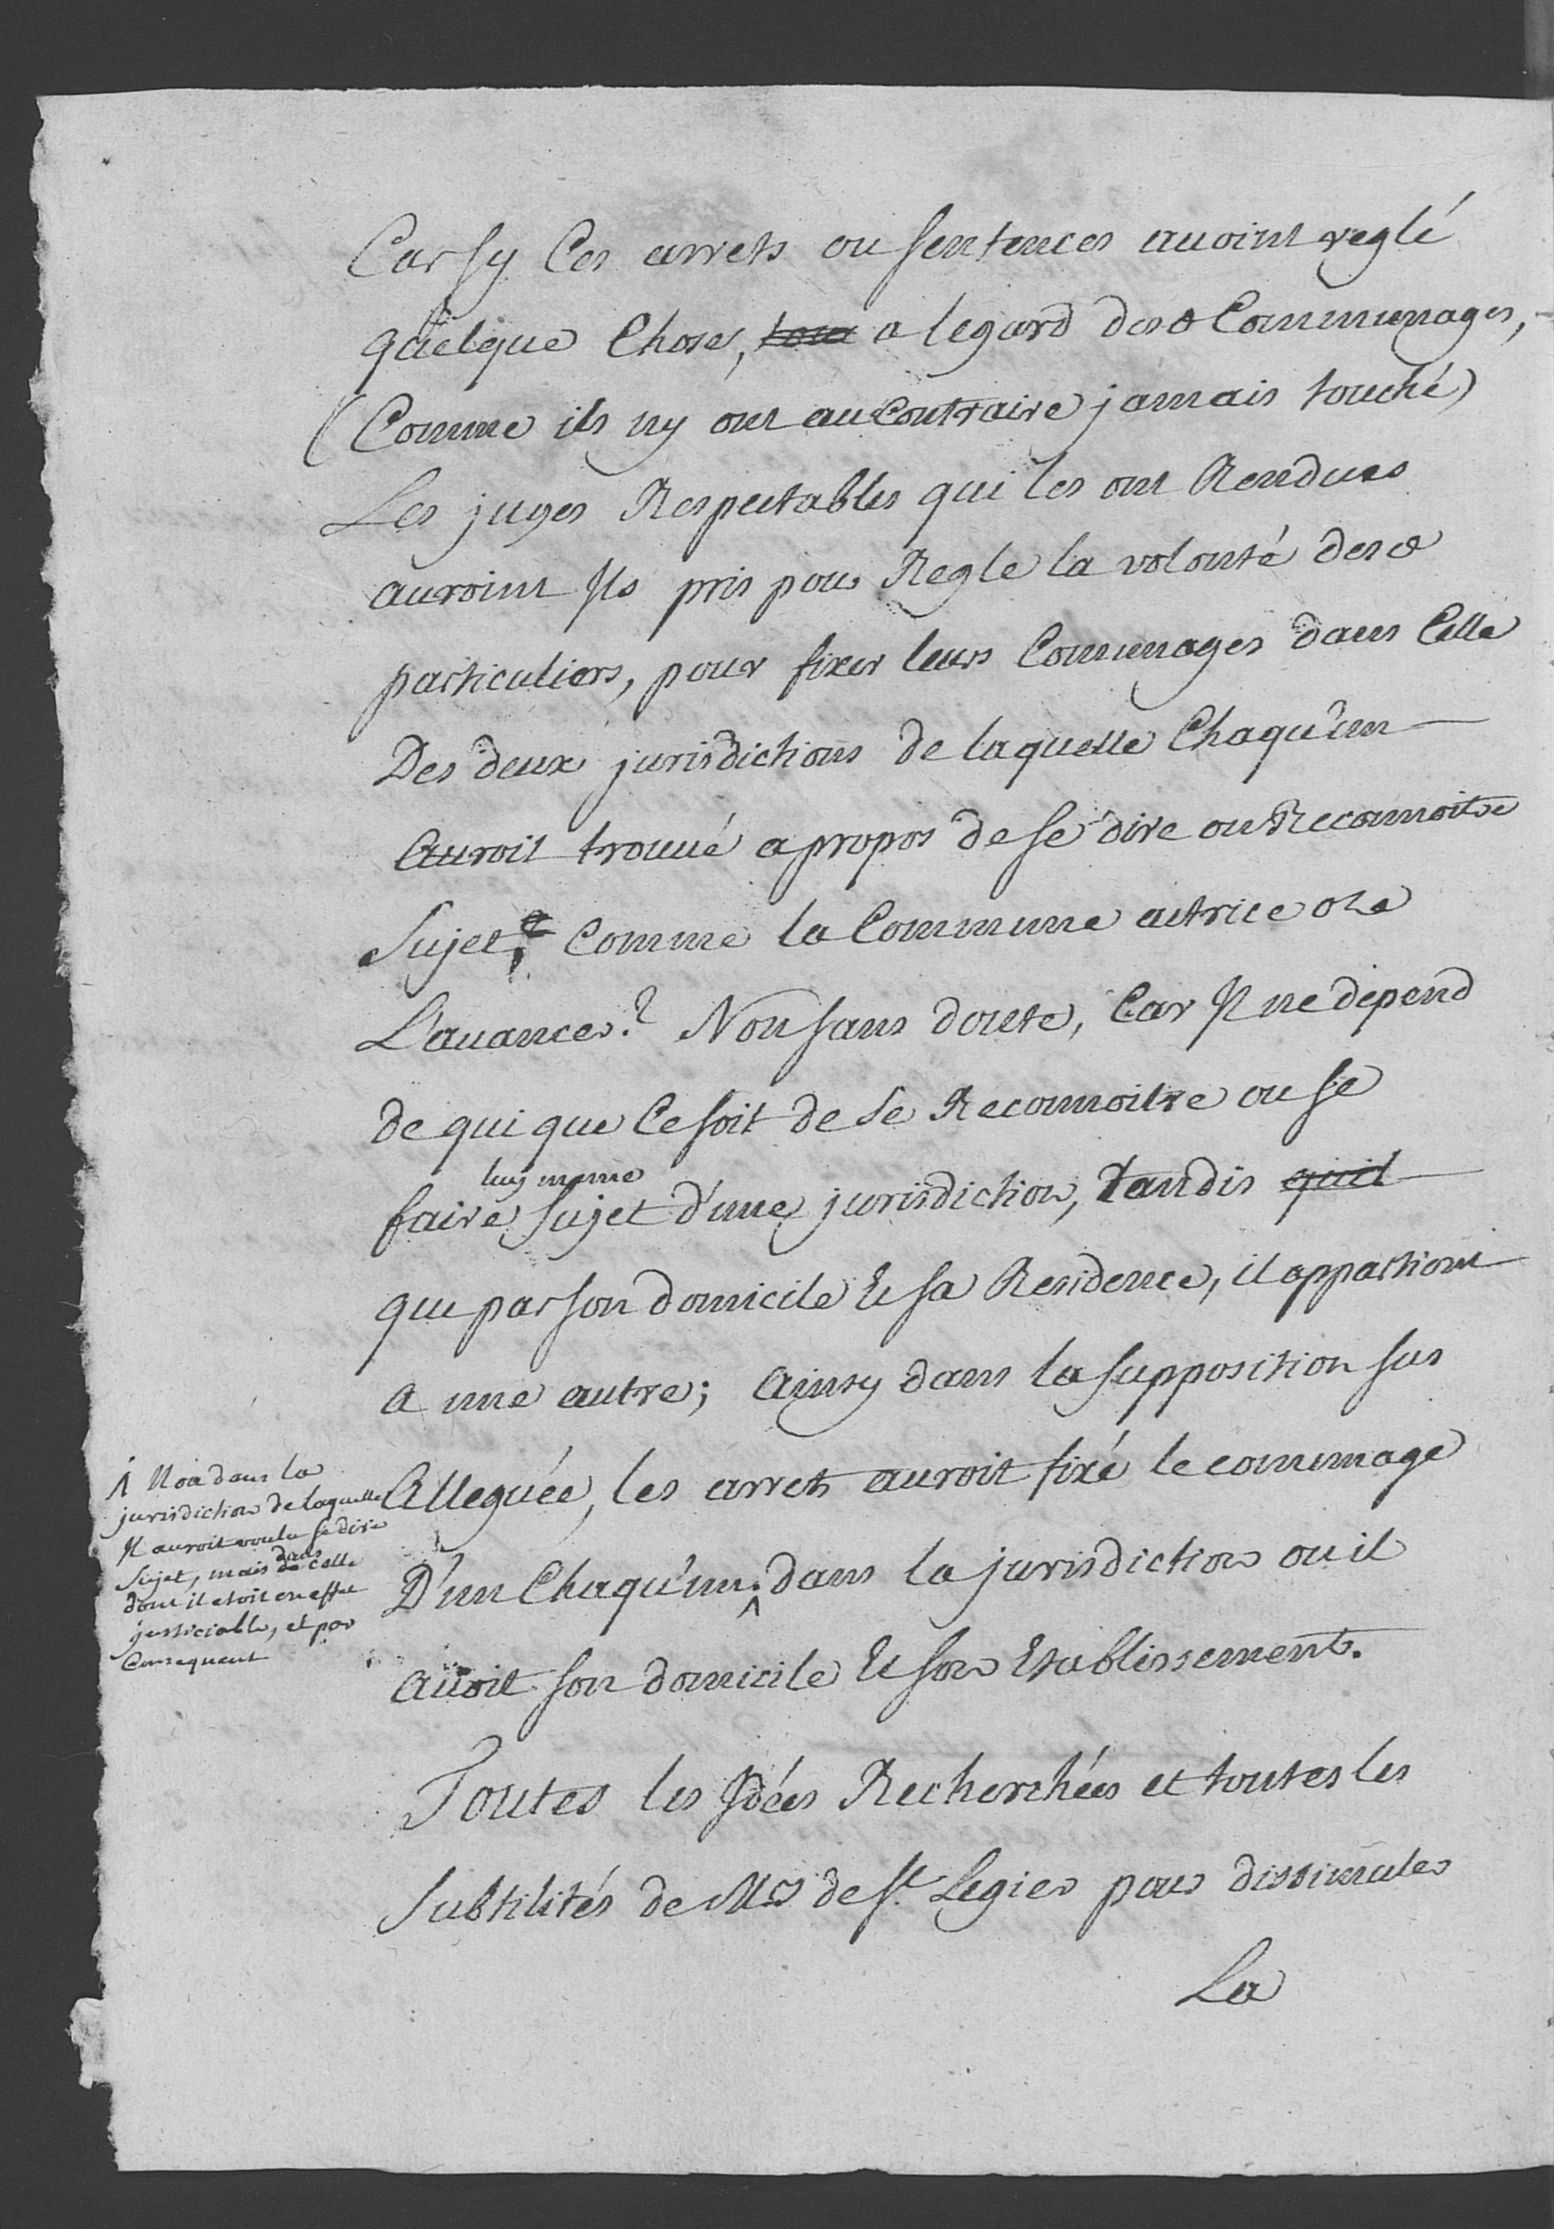 Car sy Ces arrets ou sentences avoint reglé
quelque Chose, a legard des Communages,
(Comme ils ny ont au Contraire jamais touché)
Les juges Respectables qui les ont Rendues
auroint Ils pris pour Regle la volonté des
particuliers, pour fixer leurs Communages dans Celle
Des deux jurisdictions de laquelle Chaqu'un
auroit trouvé a propos de se dire ou Reconnoitre
Sujet, Comme la Commune actrice ose
L'avancer? Non sans doute, Car Il ne depend
de qui que Ce soit de se Reconnoitre ou se
luy meme
faire sujet d'une jurisdiction, tandis quil
que par son domicile & sa Residence, il appartient
a une autre; Ainsy dans la supposition sus
Alleguée, les arrets auroit fixé le communage
D'un Chaqu'un ^ dans la jurisdiction ou il
avoit son domicile & son Etablissement.
^ Non dans la
jurisdiction de laquelle
Il auroit voulu se dire
Sujet, mais dans celle
dont il etoit en effet
justiciable, et par
Consequent
Toutes les Idées Recherchées et toutes les
subtilités de Mrs de St. Legier pour dissimuler
La